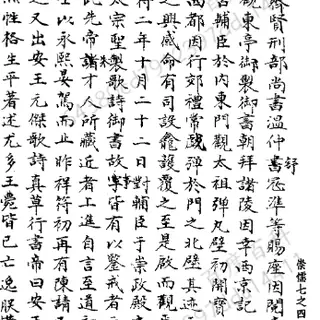 齊賢刑部尚書温仲舒寇準等賜座因閱
觀東亭御製御書朝拜諸陵因幸西京記
召輔臣於内東門觀太祖彈丸壁初開寶
西都因行郊禮常戲彈於門之北壁其跡
之興感命有司設龕護覆之至是啟而觀
符二年十月二十二日對輔臣于崇政殿
太宗聖製歌詩御書故事皆有以鑒戒者
此先帝諸才人所藏近者上進自言至道初
在以永熙晏駕而止昨祥符初再有陳請
之又出安王元傑歌詩真草行書帝曰安王
然性格生平著述尤多王薨皆已亡逸朕
崇儒七之四